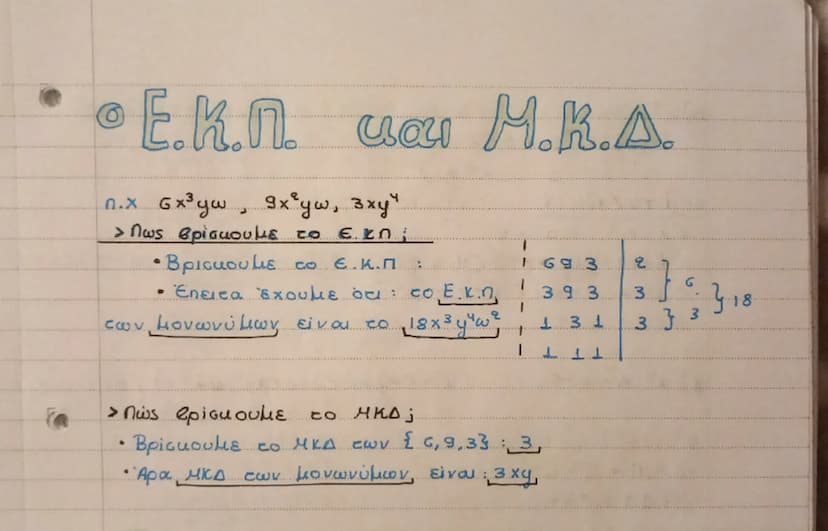 Ε.Κ.Π. και Μ.Κ.Δ.
π.χ 6x³yω , 9x²yω, 3xy⁴
> Πως βρίσκουμε το Ε.ΚΠ ;
• Βρισκουμε το Ε.Κ.Π :
• Έπειτα έχουμε ότι : το Ε.Κ.Π
των μονωνύμων είναι το 18x³y⁴ω²
6 9 3 | 2
3 9 3 | 3 } 6.
1 3 1 | 3 } 3 } 18
1 1 1
> Πώς βρίσκουμε το ΜΚΔ ;
• Βρίσκουμε το ΜΚΔ των {6,9,3} : 3
• Άρα ΜΚΔ των μονωνύμων, είναι : 3xy